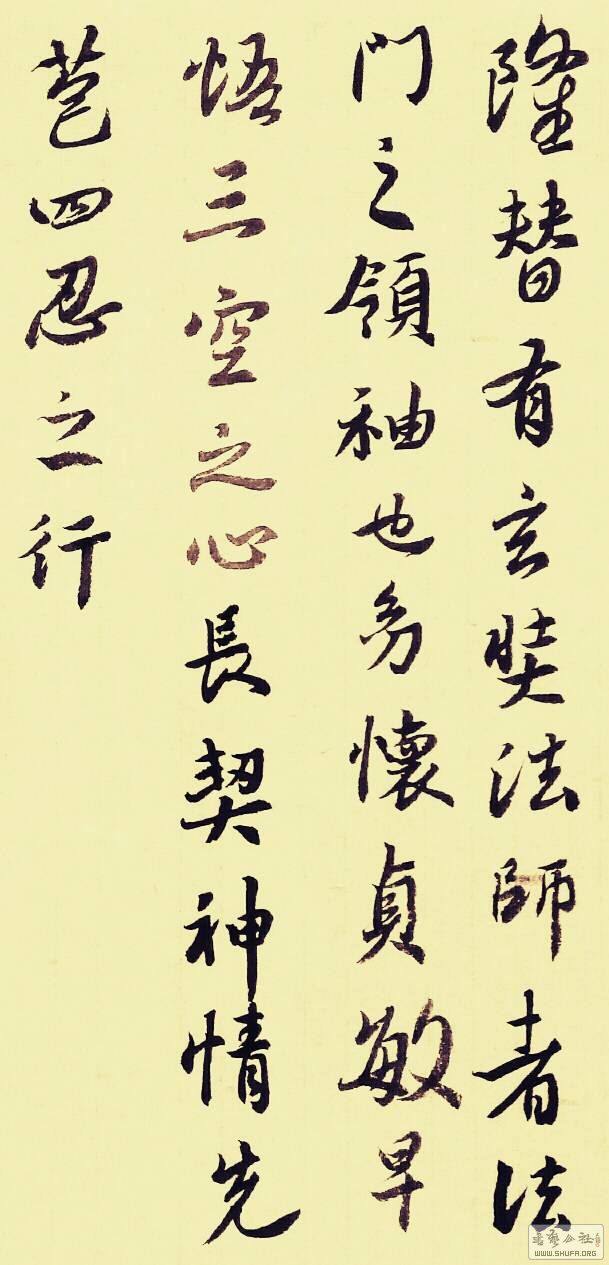 隆替有玄奘法師者法
門之領袖也㓜懷貞敏早
悟三空之心長契神情先
苞四忍之行
WWW.SHUFA.ORG